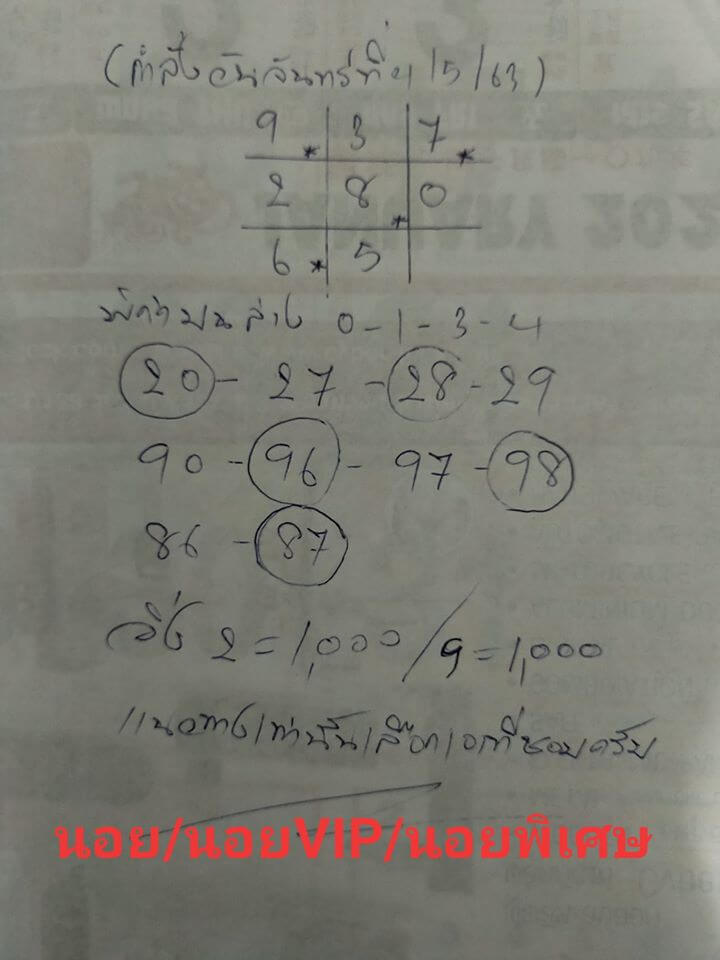 (กำลังวันจันทร์ที่ 4/5/63)
9 * 3 7 *
2 8 * 0
6 * 5
บน ล่าง 0-1-3-4
20 - 27 - 28 - 29
90 - 96 - 97 - 98
86 - 87
วิ่ง 2 = 1,000 / 9 = 1,000
แนวทางเท่านั้นเลือกเอาที่ชอบครับ
นอย/นอยVIP/นอยพิเศษ